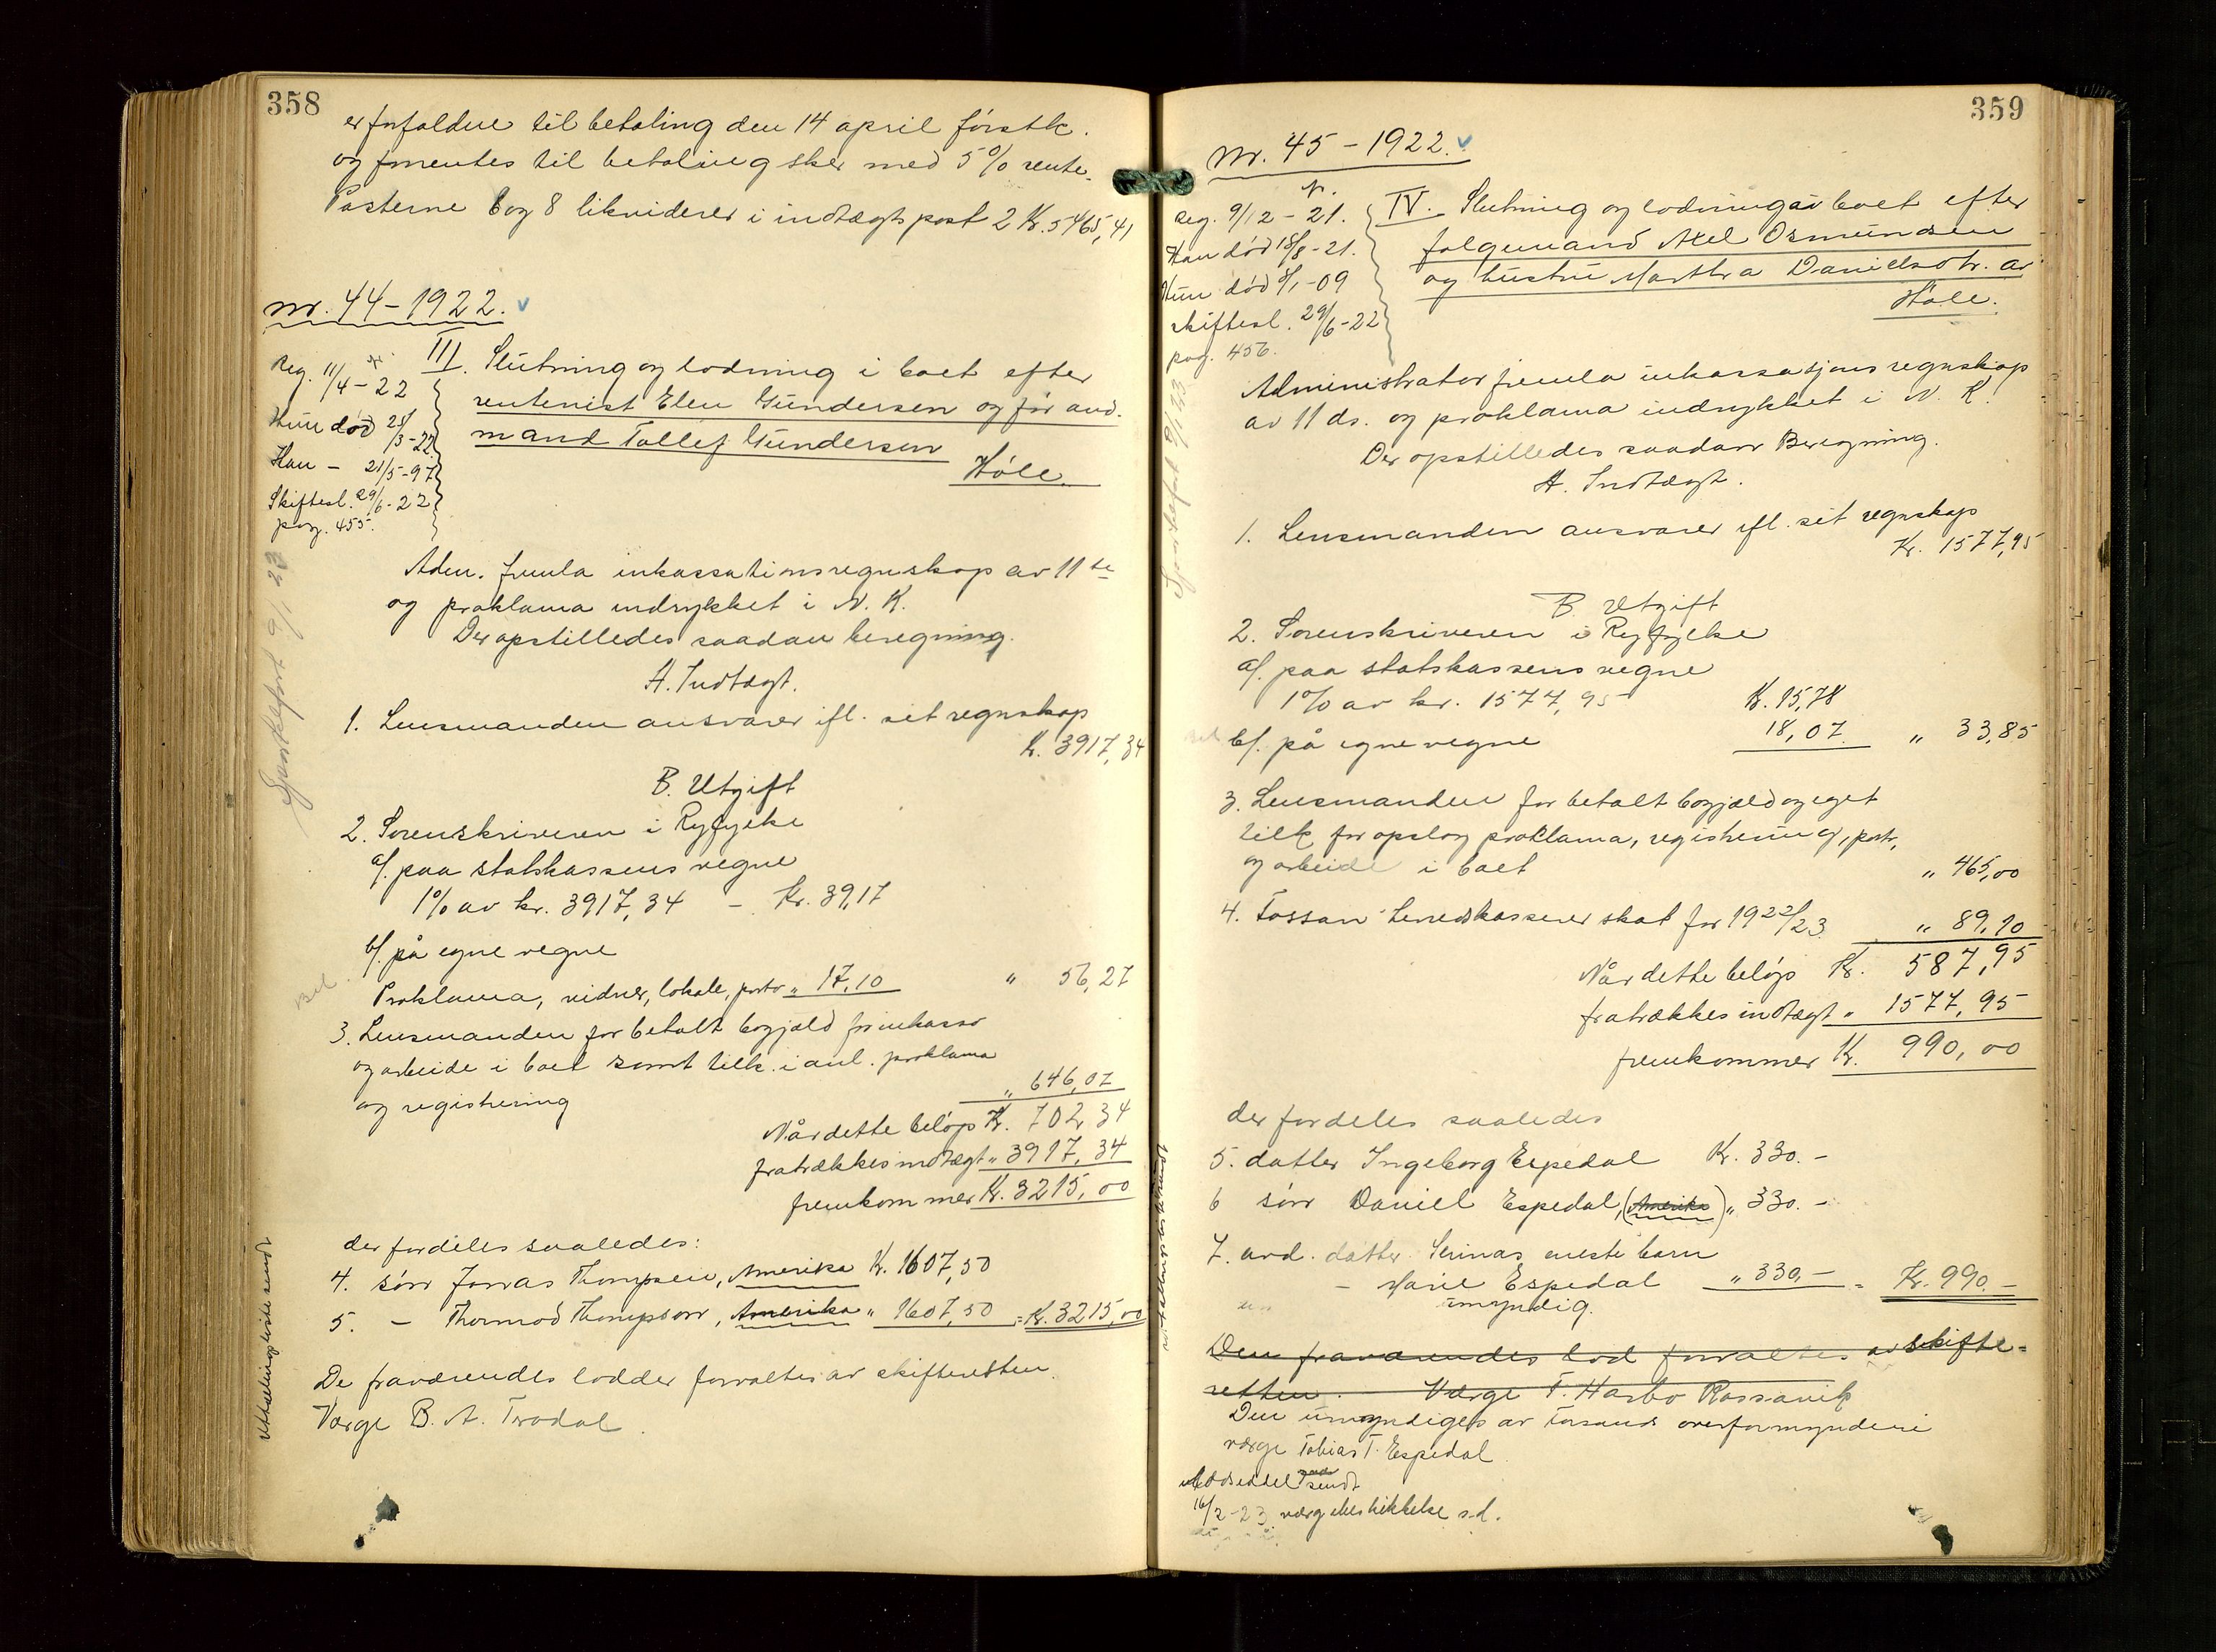 358
er forfaldne til betaling den 14 april förstk.
og forrentes til betaling sker med 5% rente.
Posterne 6 og 8 likviderer i indtægts post 2 Kr. 5465,41
nr. 44-1922. v
Reg. 11/4-22
Hun död 25/3-22
Han - 21/5-97
Skiftesl. 29/6-22
pag. 455.
III. Slutning og lodning i boet efter
rentenist Elen Gundersen og för avd.
mand Tollef Gundersen
Höle.
Adm. fremla inkassationsregnskap av 11te
og proklama indrykket i N. K.
Der opstilledes saadan beregning.
A. Indtægt.
1. Lensmanden ansvarer ifl. sit regnskap
Kr. 3917,34
B. Utgift
2. Sorenskriveren i Ryfylke
a/. paa statskassens vegne
1% av kr. 3917,34 - Kr. 39,17
b/. på egne vegne
Proklama, vidner, lokale, porto " 17,10 " 56,27
3. Lensmanden for betalt bogjæld for inkasso
og arbeide i boet samt tilk. i anl. proklama
og registrering " 646,07
Når dette belöp Kr. 702,34
fratrækkes indtægt " 3917,34
fremkommer Kr. 3215,00
der fordeles saaledes:
4. sön Jonas Thompsen, Amerika Kr. 1607,50
5. - Thormod Thompson, Amerika " 1607,50 = Kr. 3215,00
De fraværendes lodder forvaltes av skifteretten.
Værge B. A. Trodal.
Utbetalingsliste sendt
359
Nr. 45-1922. v
Reg. 9/12-21.
Han död 18/8-21.
Hun död 8/1-09
skiftesl. 29/6-22
pag. 456.
IV. Slutning og lodning i boet efter
folgemand Axel Osmundsen
og hustru Martha Danielsdtr. av
Höle.
Administrator fremla inkassasjons regnskap
av 11 ds. og proklama indrykket i N. K.
Der opstilledes saadan Beregning.
A. Indtægt.
1. Lensmanden ansvarer ifl. sit regnskap
Kr. 1577,95
B. Utgift
2. Sorenskriveren i Ryfylke
a/. paa statskassens vegne
1% av kr. 1577,95 Kr. 15,78
b/. på egne vegne 18,07 " 33,85
3. Lensmanden for betalt bogjæld og eget
tilk for opslag proklama, registrering, porto,
og arbeide i boet " 465,00
4. Fossan herredskasserer skat for 1922/23 " 89,10
Når dette belöp Kr. 587,95
fratrækkes indtægt " 1577,95
fremkommer Kr. 990,00
der fordeles saaledes
5. datter Ingeborg Espedal Kr. 330.-
6 sön Daniel Espedal, (Amerika) " 330.-
7. avd. datter Serinas eneste barn
- Marie Espedal " 330,- = Kr. 990.-
umyndig.
Den fraværendes lod forvaltes av skifte-
retten. - Værge T. Harbo Rossavik
Den umyndiges av Forsands overformynderi
værge Tobias T. Espedal
Lodseddel sendt
16/2-23. værgebeskikkelse s.d.